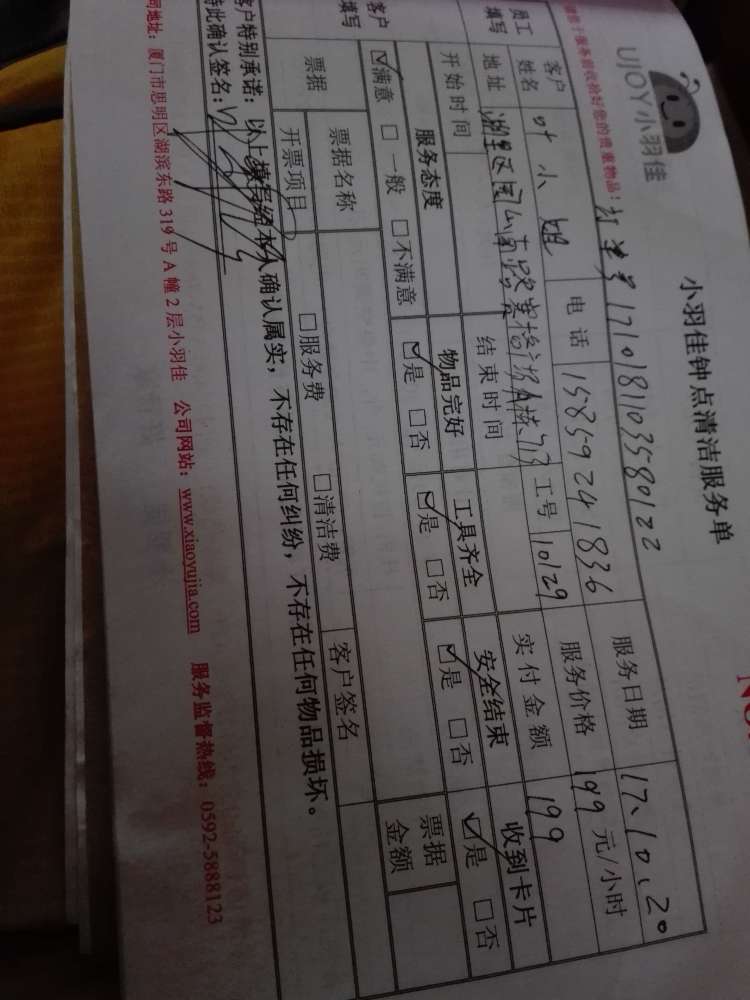 UJOY小羽佳
小羽佳钟点清洁服务单
NO.
您的贵重物品！
订单号1710181103580122
服务日期 17.10.20
员工填写
客户姓名 叶小姐 电话 15859241836 服务价格 199 元/小时
地址 湖里区 工号 10129 实付金额 199
开始时间 结束时间
客户填写
服务态度 物品完好 工具齐全 安全结束 收到卡片
☑满意 □一般 □不满意 ☑是 □否 ☑是 □否 ☑是 □否 ☑是 □否
票据 票据名称 客户签名 票据金额
开票项目 □服务费 □清洁费
客户特别承诺：以上填写经本人确认属实，不存在任何纠纷，不存在任何物品损坏。
特此确认签名：
司地址：厦门市思明区湖滨东路 319 号 A 幢 2 层小羽佳 公司网站：www.xiaoyujia.com 服务监督热线：0592-5888123